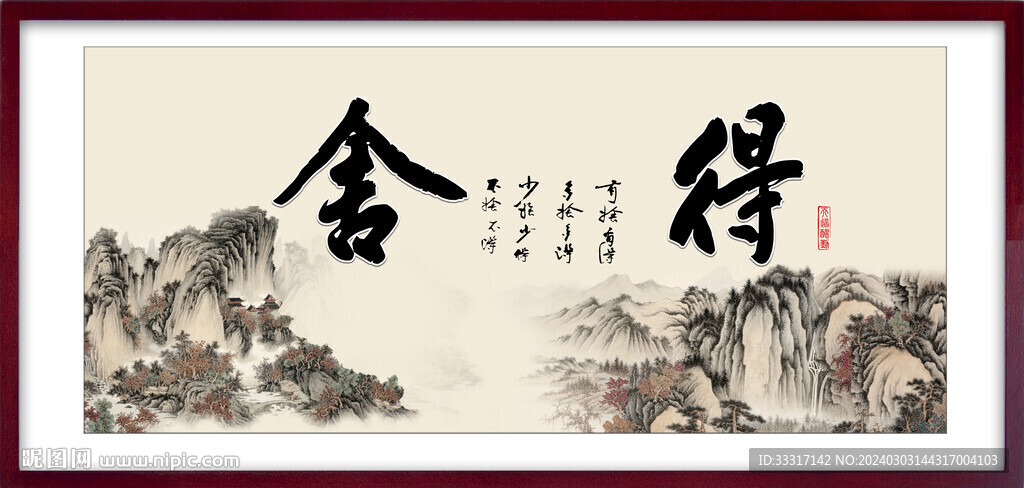 舍得
有捨有得
多捨多得
少捨少得
不捨不得
天道酬勤
昵图网 www.nipic.com
ID:33317142 NO:20240303144317004103